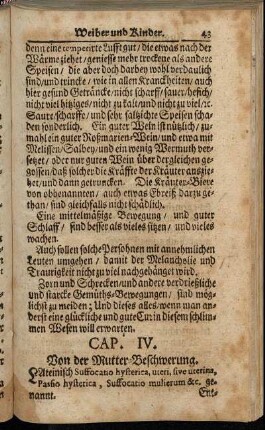 Weiber und Kinder. 43
denn eine temperirte Lufft gut / die etwas nach der
Wärme ziehet / geniesse mehr trockene als andere
Speisen / die aber doch darbey wohl verdaulich
sind / und trincke / wie in allen Kranckheiten / auch
hier gesund Geträncke / nicht scharff / sauer / hefich /
nicht viel hitziges / nicht zu kalt / und nicht zu viel / ꝛc.
Saure / scharffe / und sehr saltzichte Speisen scha-
den sonderlich. Ein guter Wein ist nützlich / zu-
mahl ein guter Roßmarien-Wein / und etwa mit
Melissen / Salbey / und ein wenig Wermuth ver-
setzet / oder nur guten Wein über dergleichen ge-
gossen / daß solcher die Kräffte der Kräuter auszie-
het / und dann getruncken. Die Kräuter-Biere
von obbenannten / auch etwas Ehreiß darzu ge-
than / sind gleichfalls nicht schädlich.
Eine mittelmäßige Bewegung / und guter
Schlaff / sind besser als vieles sitzen / und vieles
wachen.
Auch sollen solche Persohnen mit annehmlichen
Leuten umgehen / damit der Melancholie und
Traurigkeit nicht zu viel nachgehänget wird.
Zorn und Schrecken / und andere verdrießliche
und starcke Gemüths-Bewegungen / sind mög-
lichst zu meiden; Und dieses alles / wenn man an-
derst eine glückliche und gute Cur in diesem schlim-
men Wesen will erwarten.
CAP. IV.
Von der Mutter-Beschwerung.
Lateinisch Suffocatio hysterica, uteri, sive uterina,
Passio hysterica, Suffocatio mulierum &c. ge-
nannt. Ent-